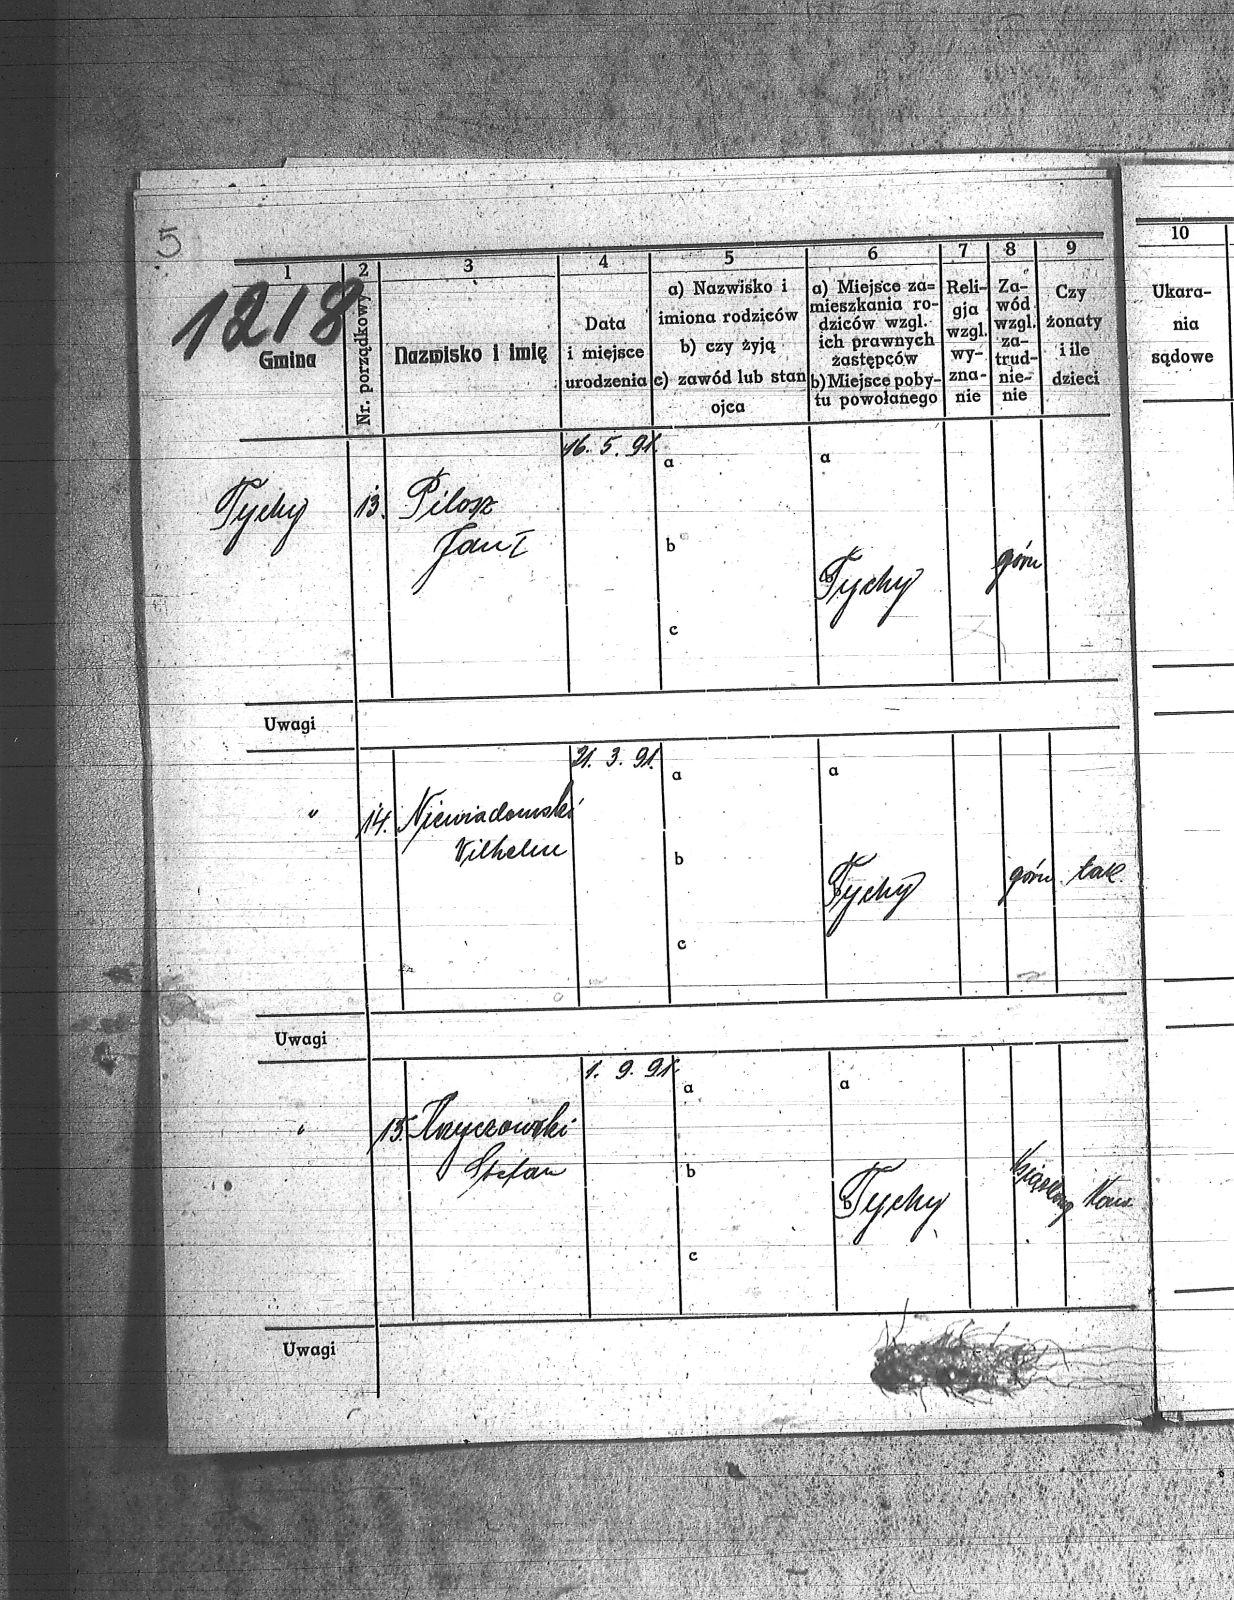 5
1 2 3 4 5 6 7 8 9 10
1218
Gmina
Nr. porządkowy
Nazwisko i imię
Data
i miejsce
urodzenia
a) Nazwisko i
imiona rodziców
b) czy żyją
c) zawód lub stan
ojca
a) Miejsce za=
mieszkania ro-
dziców wzgl.
ich prawnych
zastępców
b) Miejsce poby-
tu powołanego
Reli-
gja
wzgl.
wy-
zna-
nie
Za-
wód
wzgl.
za-
trud-
nie-
nie
Czy
żonaty
i ile
dzieci
Ukara-
nia
sądowe
16. 5. 91.
a a
Tychy 13. Pilosz
Jan I
b
b Tychy górn
c
Uwagi
21. 3. 91.
a a
" 14. Niewiadomski
Wilhelm
b
b Tychy górn. tak
c
Uwagi
1. 9. 91.
a a
" 15.
Stefan
b
b Tychy
c
Uwagi